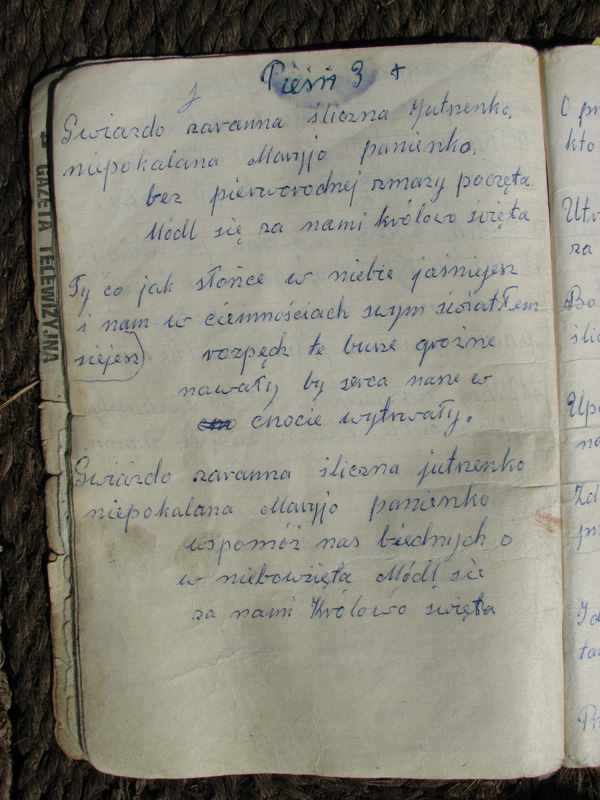 Pieśń 3 +
Gwiazdo zaranna śliczna Jutrzenko,
niepokalana Maryjo panienko.
bez pierworodnej zmazy poczęta
Módl się za nami królowo święta
Ty co jak słońce w niebie jaśniejesz
i nam w ciemnościach swym światłem
siejesz rozpędź te burze groźne
nawały by serca nasze w
cnocie wytrwały.
Gwiazdo zaranna śliczna jutrzenko
niepokalana Maryjo panienko
wspomóż nas biednych o
w niebowzięta Módl się
za nami Królowo święta
GAZETA TELEWIZYJNA
O pr
kto
Utr
za
Bo
ślic
Upa
na
Zd
pr
ta